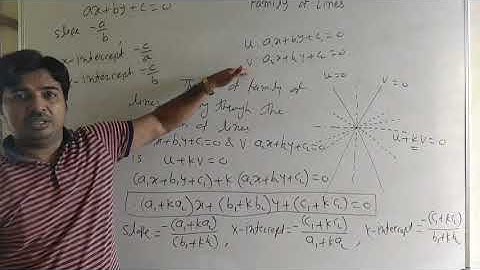 ax+by+c=0
Family of Lines
slope -a/b
x-intercept -c/a
x-intercept -c/b
u: a₁x+b₁y+c₁=0
v: a₂x+b₂y+c₂=0
u=0
v=0
of family of
lines through the
of lines
b₁y+c₁=0 & v: a₂x+b₂y+c₂=0
is u+kv=0
u+kv=0
(a₁x+b₁y+c₁)+k(a₂x+b₂y+c₂)=0
(a₁+ka₂)x+(b₁+kb₂)y+(c₁+kc₂)=0
slope=-(a₁+ka₂)/(b₁+kb₂), x-intercept=-(c₁+kc₂)/a₁+ka₂, x-intercept=-(c₁+kc₂)/b₁+kb₂